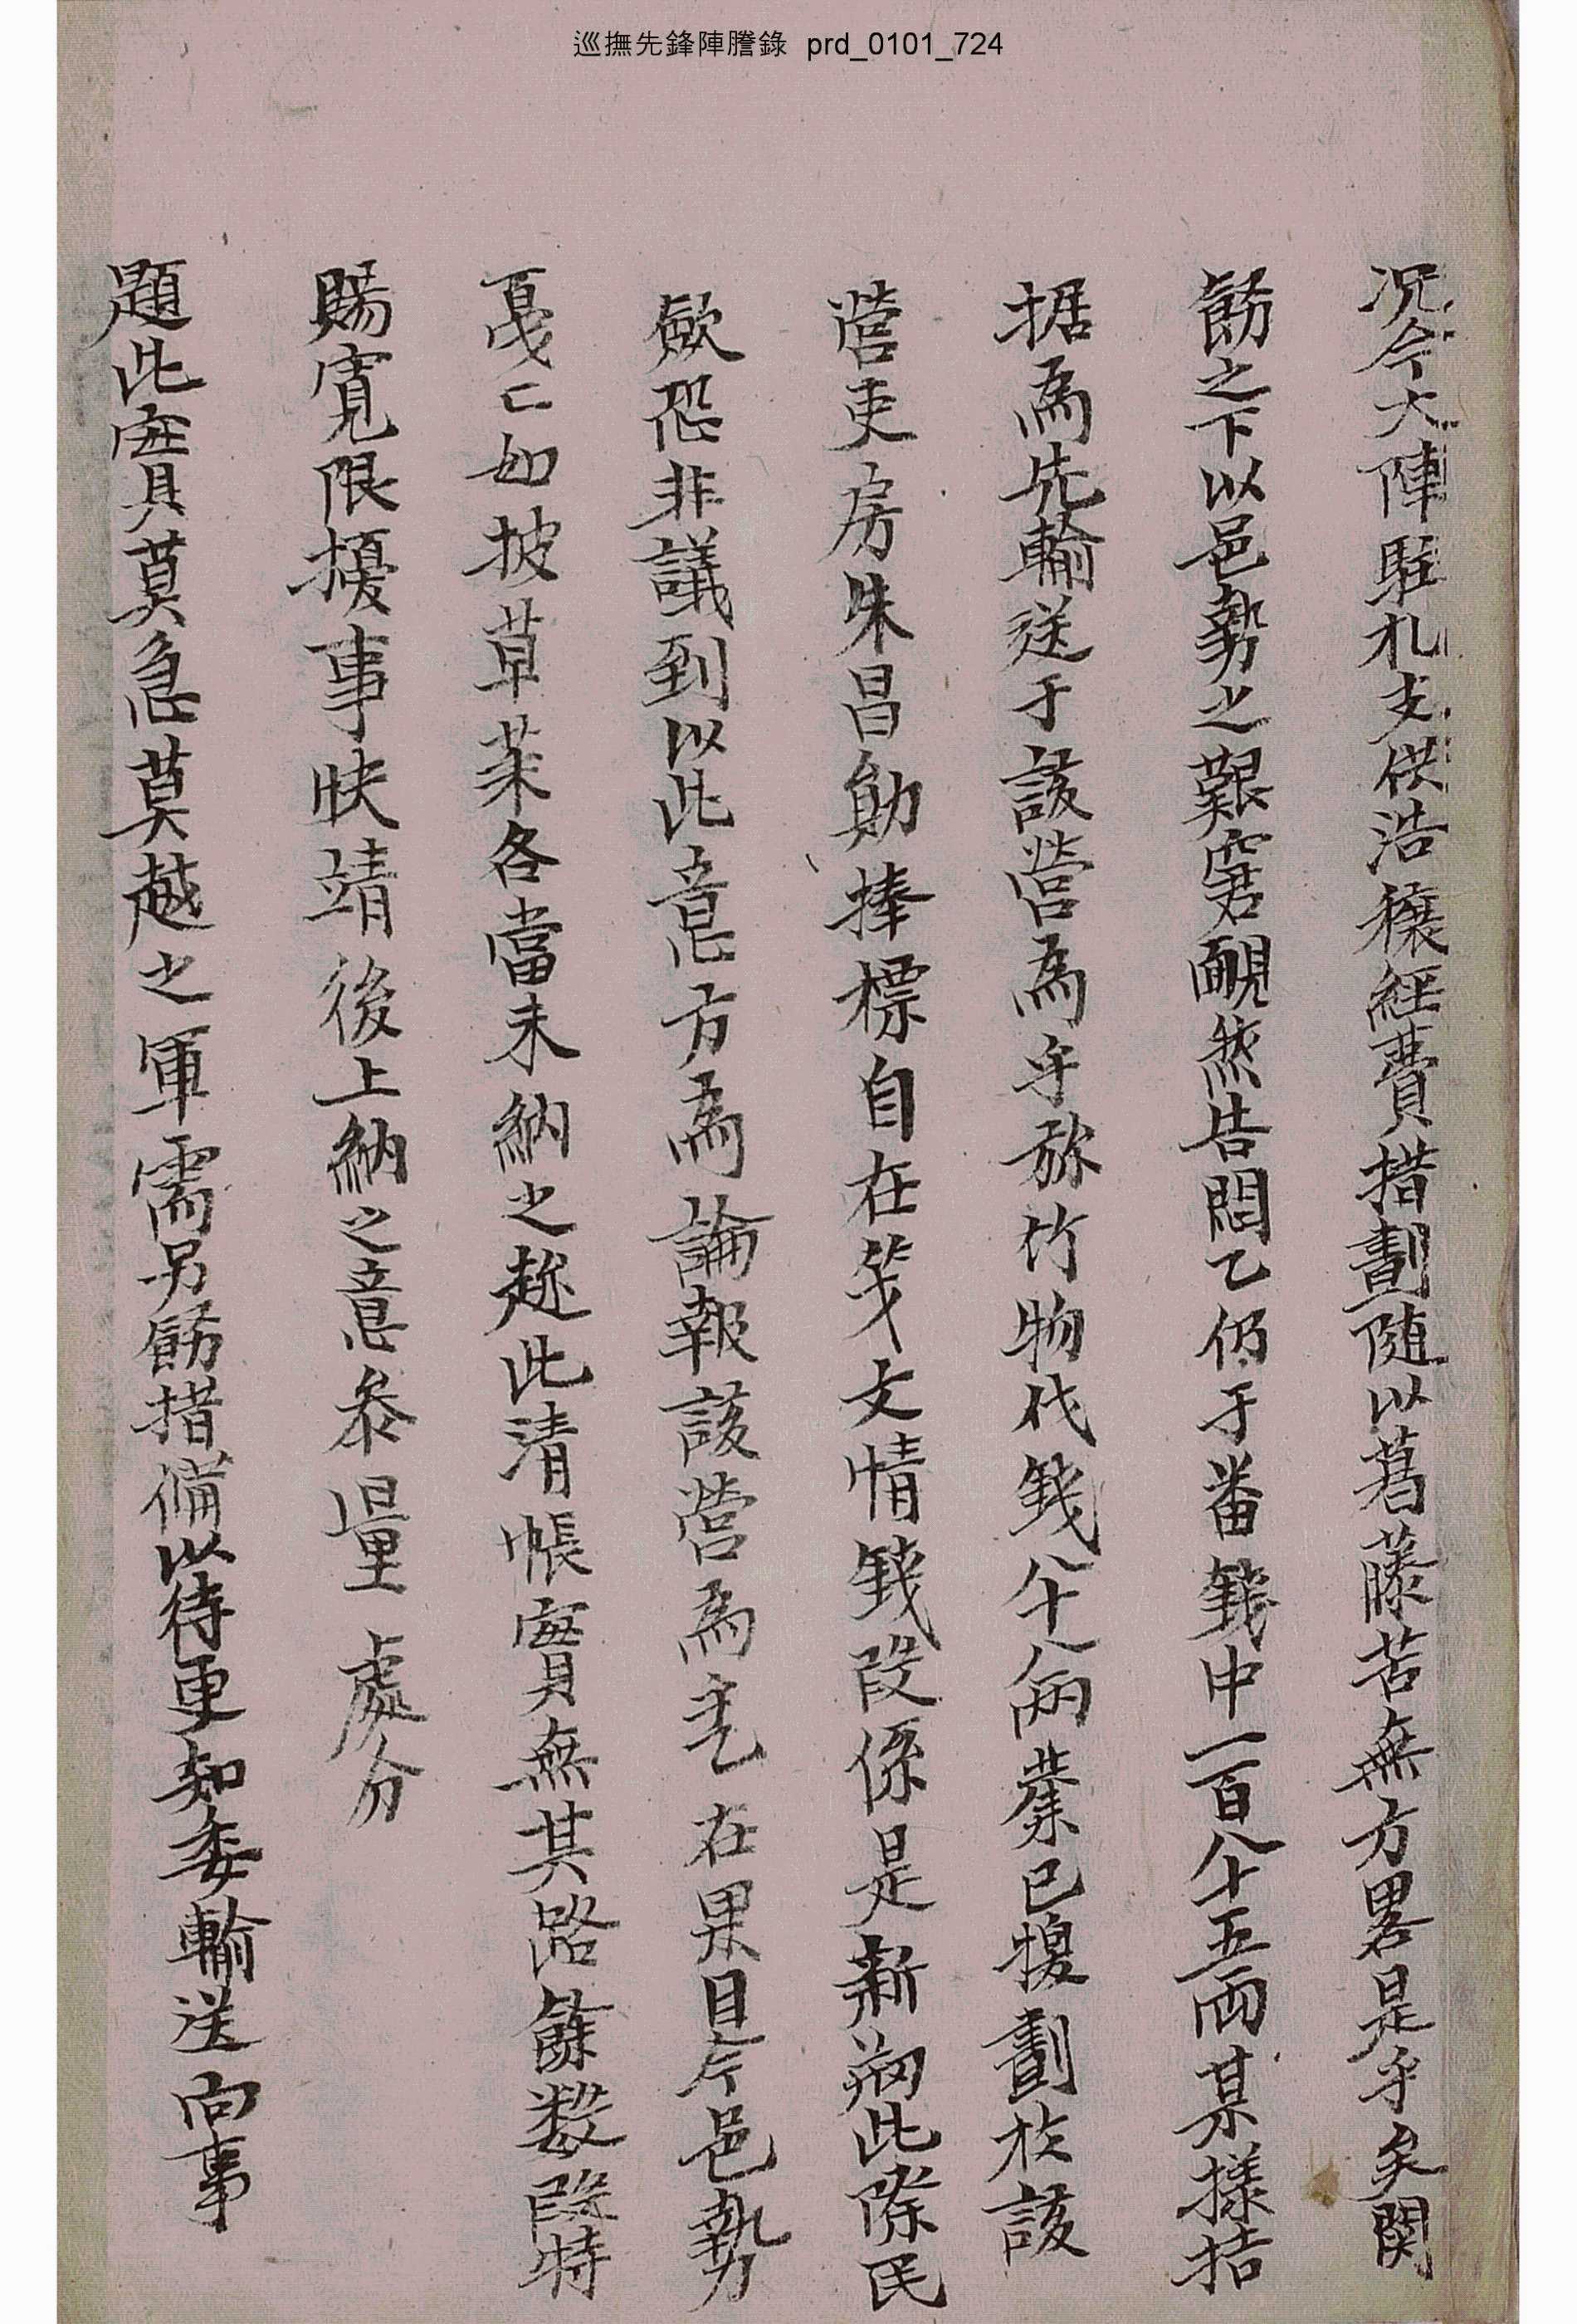 巡撫先鋒陣謄錄 prd_0101_724
况今大陣駐札支供浩穰経費措劃随以葛藤苦無方畧是乎矣関
飭之下以邑勢之艱窘覼然告悶乙仍于番錢中一百八十五両某様拮
据為先輸送于該營為乎㫆竹物代錢八十八兩葉已搜劃於該
營吏房朱昌勛捧標自在笺文情錢段係是新㓊此際民
歛恐非議到以此意方為論報該營為乎在果目今邑勢
戞亡如披草莱各當未納之趂此清帳實無其路餘數段特
賜寬限擾事快靖後上納之意叅量 處分
題此實莫急莫越之軍需另飭措備以待更知委輸送向事